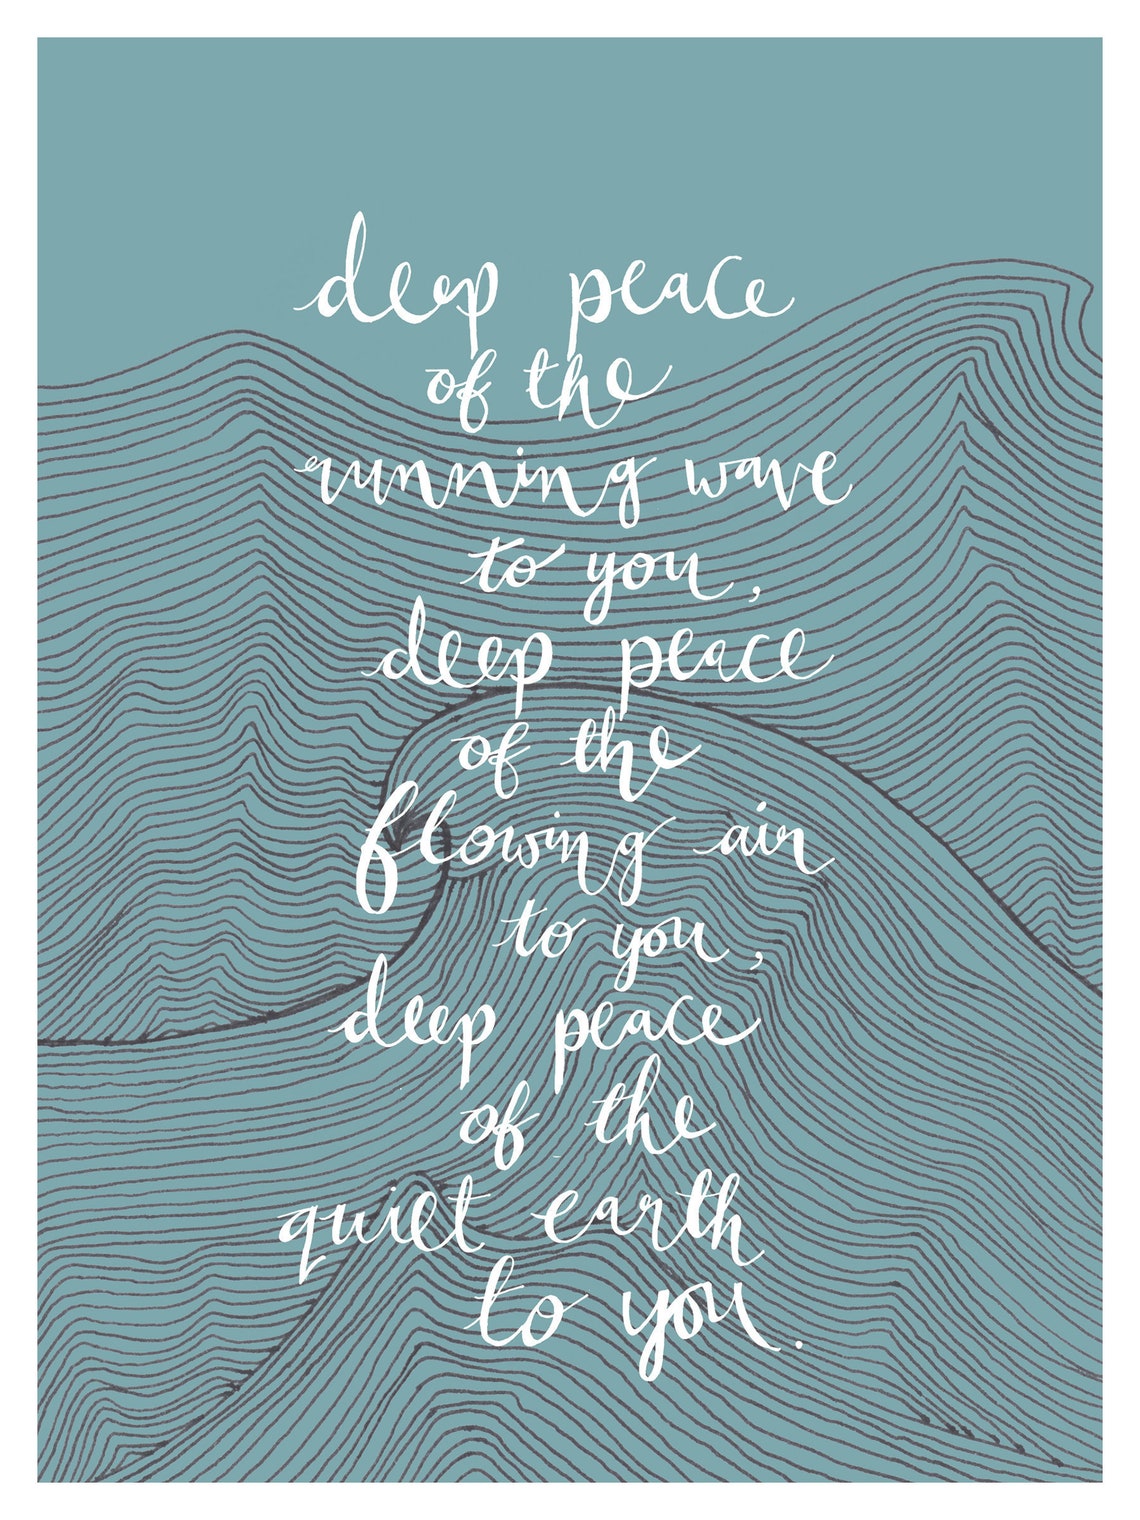 deep peace
of the
running wave
to you,
deep peace
of the
flowing air
to you,
deep peace
of the
quiet earth
to you.